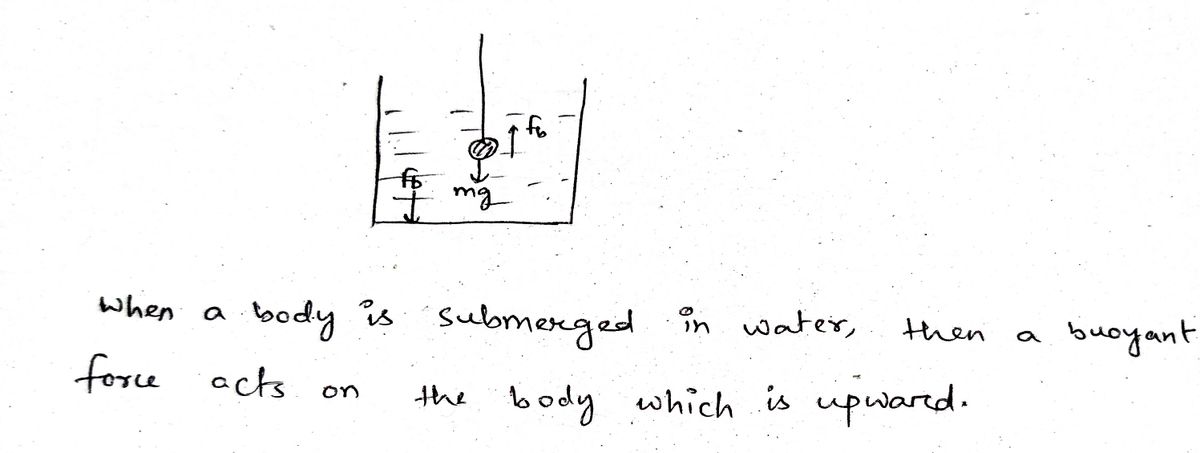 fb
fb
mg
When a body is submerged in water, then a buoyant
force acts on the body which is upward.